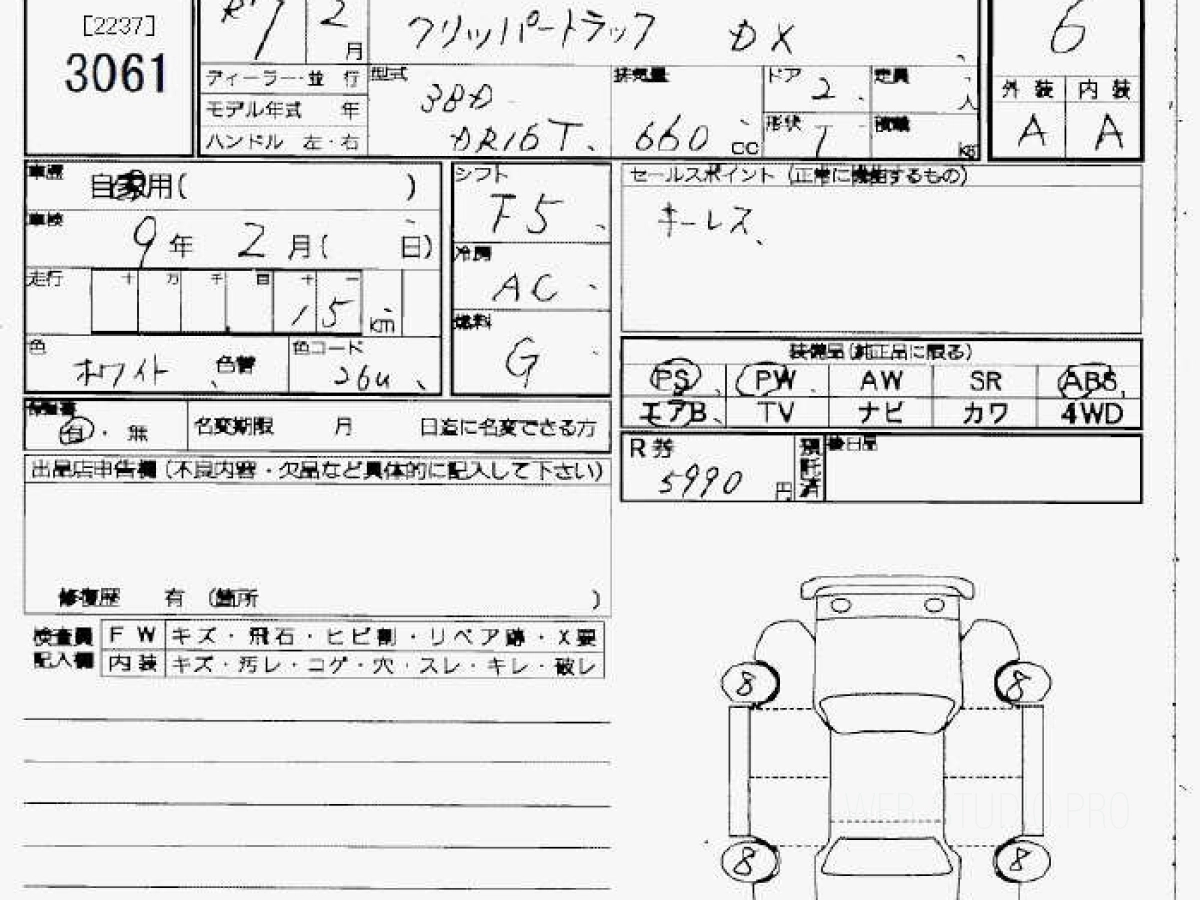 [2237]
3061
R7 2 月
クリッパートラック DX
6
ディーラー・並 行
モデル年式 年
ハンドル 左・右
型式
3BD
DR16T
排気量
660 cc
ドア 2
形状 1
定員 人
積載 kg
外装 内装
A A
車歴 自家用( )
車検 9年 2月( 日)
走行 十 万 千 百 十 一
15 km
色 ホワイト 色替
色コード 26U
シフト
F5
冷房
AC
燃料
G
セールスポイント (正常に機能するもの)
キーレス
装備品(純正品に限る)
PS PW AW SR ABS
エアB TV ナビ カワ 4WD
保証書 有・無
名変期限 月 日迄に名変できる方
R券 5990 円
預託済
後日品
出品店申告欄(不良内容・欠品など具体的に記入して下さい)
修復歴 有 (箇所 )
検査員記入欄
FW キズ・飛石・ヒビ割・リペア跡・X要
内装 キズ・汚レ・コゲ・穴・スレ・キレ・破レ
8 8
WEB STUDIO PRO
8 8